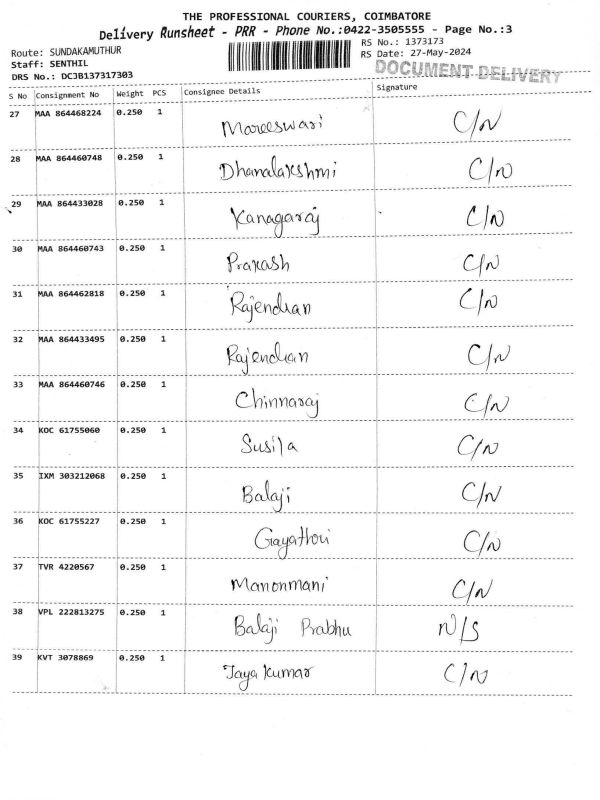 THE PROFESSIONAL COURIERS, COIMBATORE
Delivery Runsheet - PRR - Phone No.:0422-3505555 - Page No.:3
Route: SUNDAKAMUTHUR
RS No.: 1373173
Staff: SENTHIL
RS Date: 27-May-2024
DRS No.: DCJB137317303
DOCUMENT DELIVERY
S No Consignment No Weight PCS Consignee Details Signature
27 MAA 864468224 0.250 1 Mareeswari C/N
28 MAA 864460748 0.250 1 Dhanalakshmi C/N
29 MAA 864433028 0.250 1 Kanagaraj C/N
30 MAA 864460743 0.250 1 Prakash C/N
31 MAA 864462818 0.250 1 Rajendran C/N
32 MAA 864433495 0.250 1 Rajendran C/N
33 MAA 864460746 0.250 1 Chinnaraj C/N
34 KOC 61755060 0.250 1 Susila C/N
35 IXM 303212068 0.250 1 Balaji C/N
36 KOC 61755227 0.250 1 Gayathri C/N
37 TVR 4220567 0.250 1 Manonmani C/N
38 VPL 222813275 0.250 1 Balaji Prabhu N/S
39 KVT 3078869 0.250 1 Jaya kumar C/N